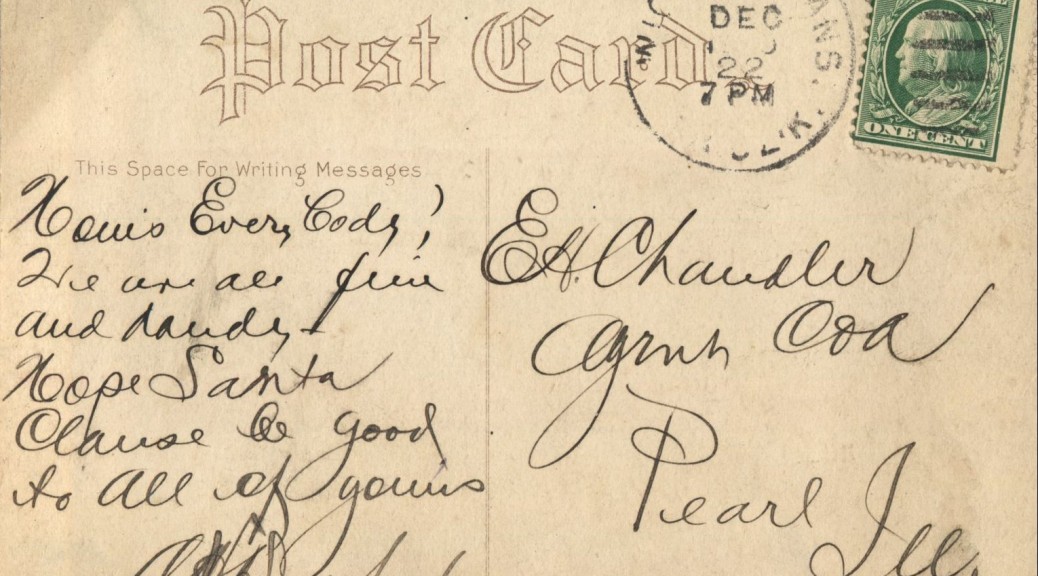 Post Card
DEC
22
7 PM
ONE CENT
This Space For Writing Messages
Howis Every Body!
We are all fine
and dandy
Hope Santa
Clause be good
to All of yours
E.H. Chandler
Agrnh Coa
Pearl Ill